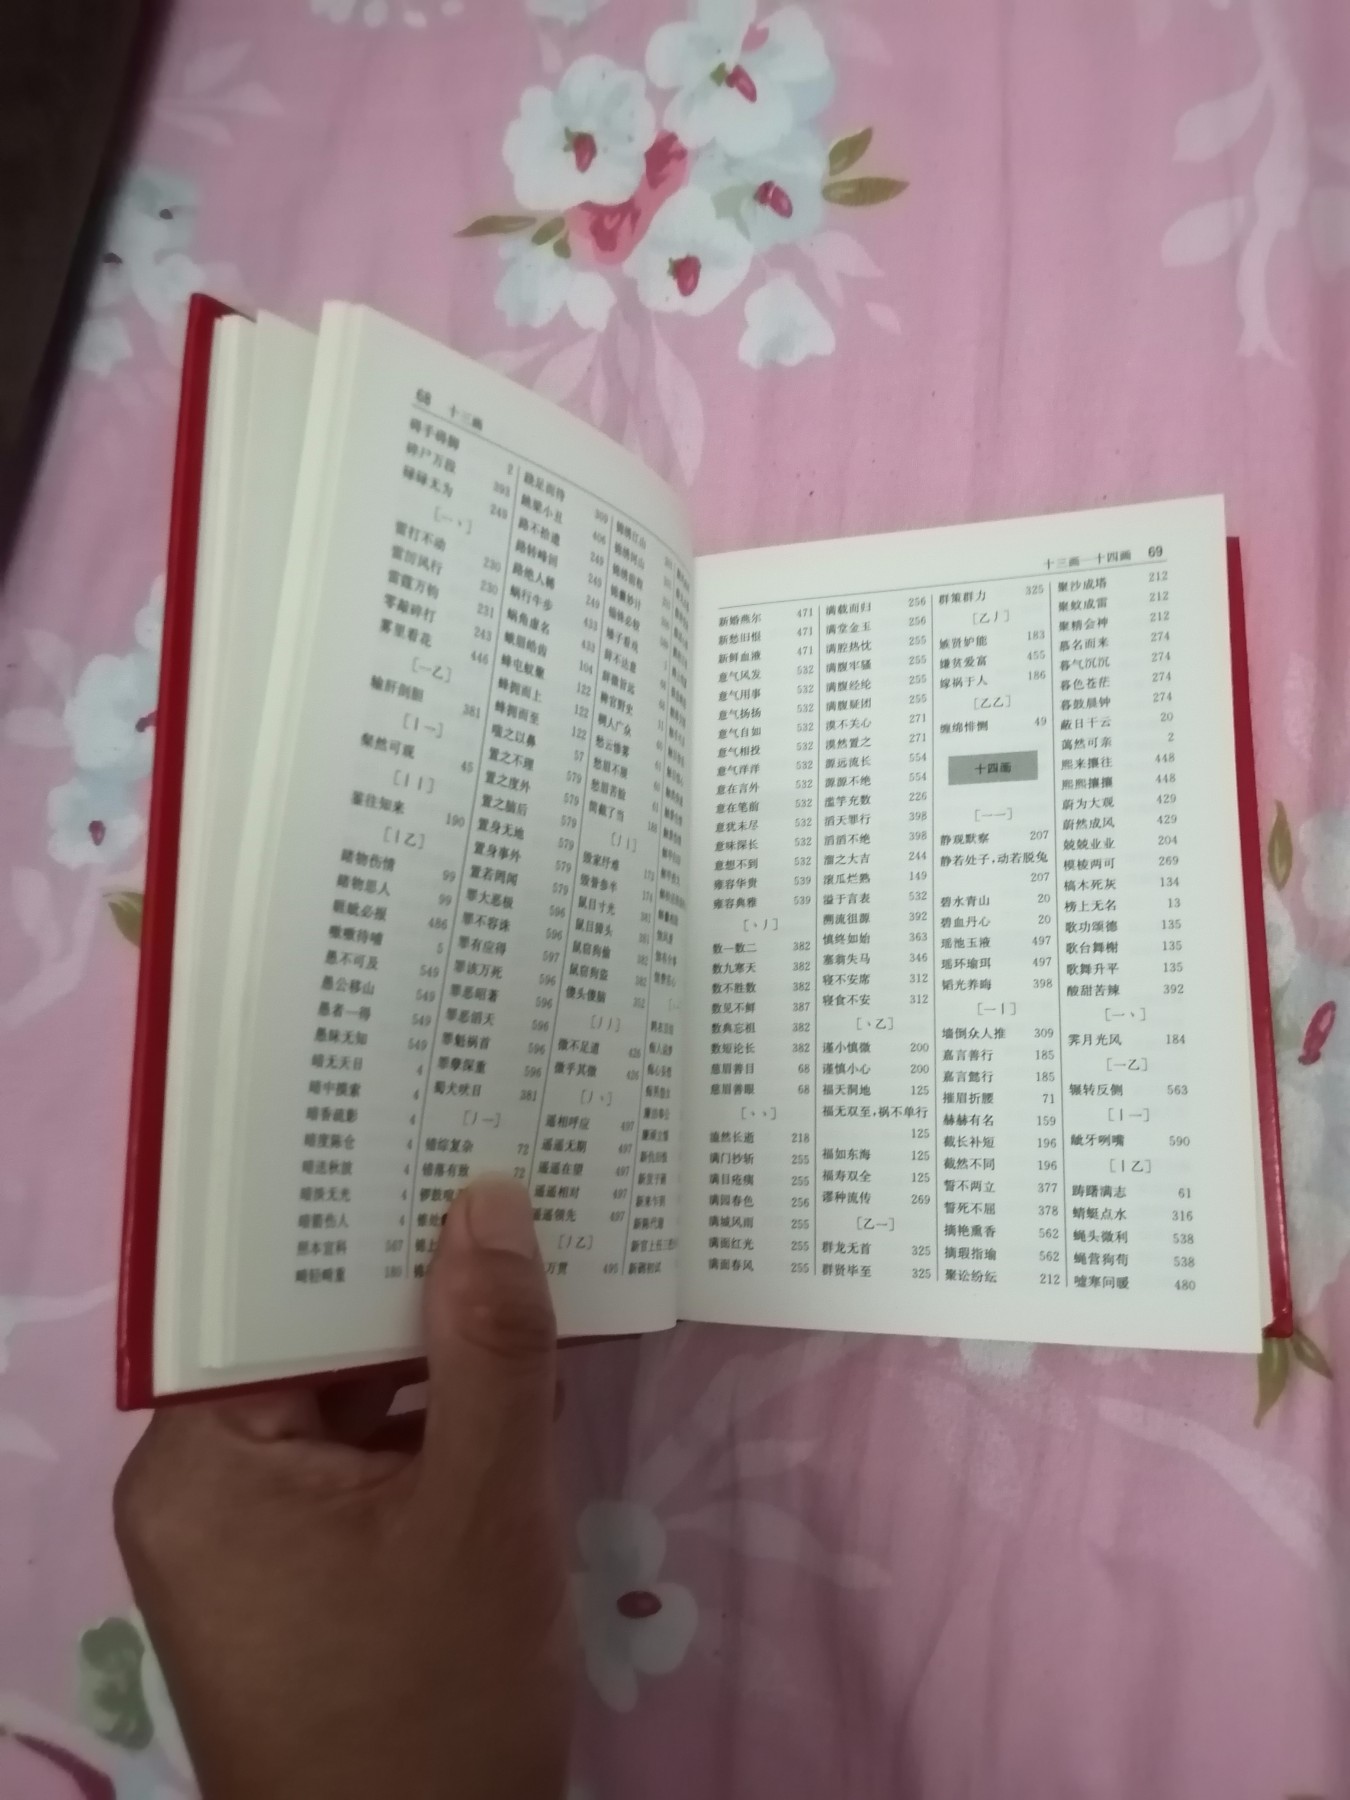 68 十三画
碍手碍脚 2
碎尸万段 393
碌碌无为 249
[一丶]
雷打不动 230
雷厉风行 230
雷霆万钧 231
零敲碎打 243
雾里看花 446
[一乙]
输肝剖胆 381
[丨一]
粲然可观 45
[丨丨]
鉴往知来 190
[丨乙]
睹物伤情 99
睹物思人 99
睚眦必报 486
嗷嗷待哺 5
愚不可及 549
愚公移山 549
愚者一得 549
愚昧无知 549
暗无天日 4
暗中摸索 4
暗香疏影 4
暗度陈仓 4
暗送秋波 4
暗淡无光 4
暗箭伤人 4
照本宣科 567
畸轻畸重 180
跷足而待 309
跳梁小丑 406
路不拾遗 249
路转峰回 249
路绝人稀 249
蜗行牛步 433
蜗角虚名 433
蛾眉皓齿 104
蜂屯蚁聚 122
蜂拥而上 122
蜂拥而至 122
嗤之以鼻 57
置之不理 579
置之度外 579
置之脑后 579
置身无地 579
置身事外 579
置若罔闻 579
罪大恶极 596
罪不容诛 596
罪有应得 597
罪该万死 596
罪恶昭著 596
罪恶滔天 596
罪魁祸首 596
罪孽深重 596
蜀犬吠日 381
[丿一]
错综复杂 72
错落有致 72
锦绣江山
锦绣河山
锦绣前程
锦囊妙计
锱铢必较
矮子看戏
辞不达意
稗官野史
稠人广众
愁云惨雾
愁眉不展
愁眉苦脸
简截了当
[丿丨]
毁家纾难 173
毁誉参半 174
鼠目寸光 381
鼠目獐头 381
鼠窃狗偷 382
鼠窃狗盗 382
傻头傻脑 352
[丿丿]
微不足道 426
微乎其微 426
[丿丶]
遥相呼应 497
遥遥无期 497
遥遥在望 497
遥遥相对 497
遥遥领先 497
[丿乙]
万贯 495
十三画—十四画 69
新婚燕尔 471
新愁旧恨 471
新鲜血液 471
意气风发 532
意气用事 532
意气扬扬 532
意气自如 532
意气相投 532
意气洋洋 532
意在言外 532
意在笔前 532
意犹未尽 532
意味深长 532
意想不到 532
雍容华贵 539
雍容典雅 539
[丶丿]
数一数二 382
数九寒天 382
数不胜数 382
数见不鲜 387
数典忘祖 382
数短论长 382
慈眉善目 68
慈眉善眼 68
[丶丶]
溘然长逝 218
满门抄斩 255
满目疮痍 255
满园春色 256
满城风雨 255
满面红光 255
满面春风 255
满载而归 256
满堂金玉 256
满腔热忱 255
满腹牢骚 255
满腹经纶 255
满腹疑团 255
漠不关心 271
漠然置之 271
源远流长 554
源源不绝 554
滥竽充数 226
滔天罪行 398
滔滔不绝 398
溜之大吉 244
滚瓜烂熟 149
溢于言表 532
溯流徂源 392
慎终如始 363
塞翁失马 346
寝不安席 312
寝食不安 312
[丶乙]
谨小慎微 200
谨慎小心 200
福天洞地 125
福无双至,祸不单行
125
福如东海 125
福寿双全 125
谬种流传 269
[乙一]
群龙无首 325
群贤毕至 325
群策群力 325
[乙丿]
嫉贤妒能 183
嫌贫爱富 455
嫁祸于人 186
[乙乙]
缠绵悱恻 49
十四画
[一一]
静观默察 207
静若处子,动若脱兔
207
碧水青山 20
碧血丹心 20
瑶池玉液 497
瑶环瑜珥 497
韬光养晦 398
[一丨]
墙倒众人推 309
嘉言善行 185
嘉言懿行 185
摧眉折腰 71
赫赫有名 159
截长补短 196
截然不同 196
誓不两立 377
誓死不屈 378
摘艳熏香 562
摘瑕指瑜 562
聚讼纷纭 212
聚沙成塔 212
聚蚊成雷 212
聚精会神 212
慕名而来 274
暮气沉沉 274
暮色苍茫 274
暮鼓晨钟 274
蔽日干云 20
蔼然可亲 2
熙来攘往 448
熙熙攘攘 448
蔚为大观 429
蔚然成风 429
兢兢业业 204
模棱两可 269
槁木死灰 134
榜上无名 13
歌功颂德 135
歌台舞榭 135
歌舞升平 135
酸甜苦辣 392
[一丶]
霁月光风 184
[一乙]
辗转反侧 563
[丨一]
龇牙咧嘴 590
[丨乙]
踌躇满志 61
蜻蜓点水 316
蝇头微利 538
蝇营狗苟 538
嘘寒问暖 480